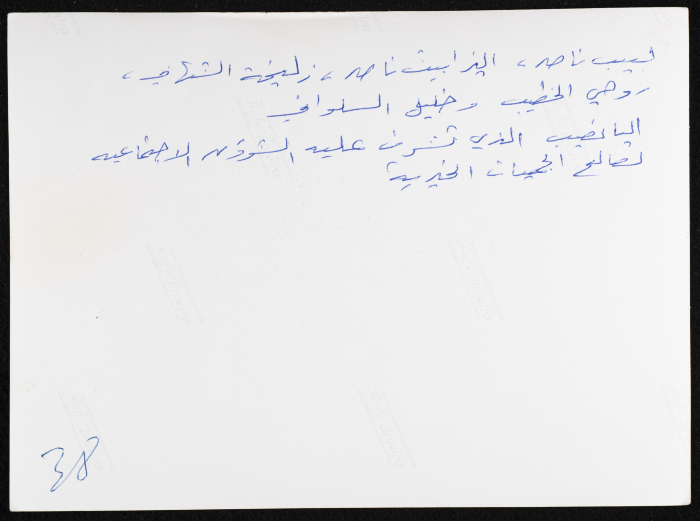 لبيب ناصر، اليزابيث ناصر، زليخة الشهابي،
روحي الخطيب وخليل السلواني
اليانصيب الذي تشرف عليه الشؤون الاجتماعيه
لصالح الجمعيات الخيرية
38